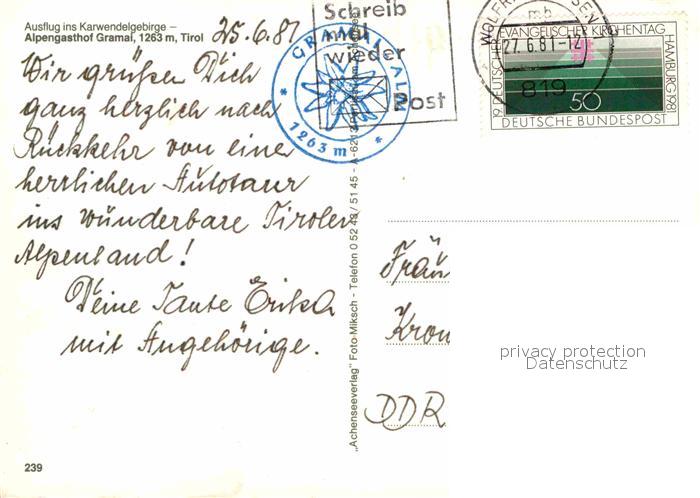 Ausflug ins Karwendelgebirge –
Alpengasthof Gramai, 1263 m, Tirol
25.6.81
Wir grüßen Dich
ganz herzlich nach
Rückkehr von einer
herrlichen Autotour
ins wunderbare Tiroler
Alpenland!
Deine Tante Erika
mit Angehörige.
239
GRAMAI ALM
* 1263 m *
Schreib
mal
wieder
Post
27.6.81-12
mb
819
19. DEUTSCHER EVANGELISCHER KIRCHENTAG HAMBURG 1981
50
DEUTSCHE BUNDESPOST
„Achenseeverlag" Foto-Miksch - Telefon 0 52 43 / 51 45 - A-6213
Frau
Kron
DDR
privacy protection
Datenschutz